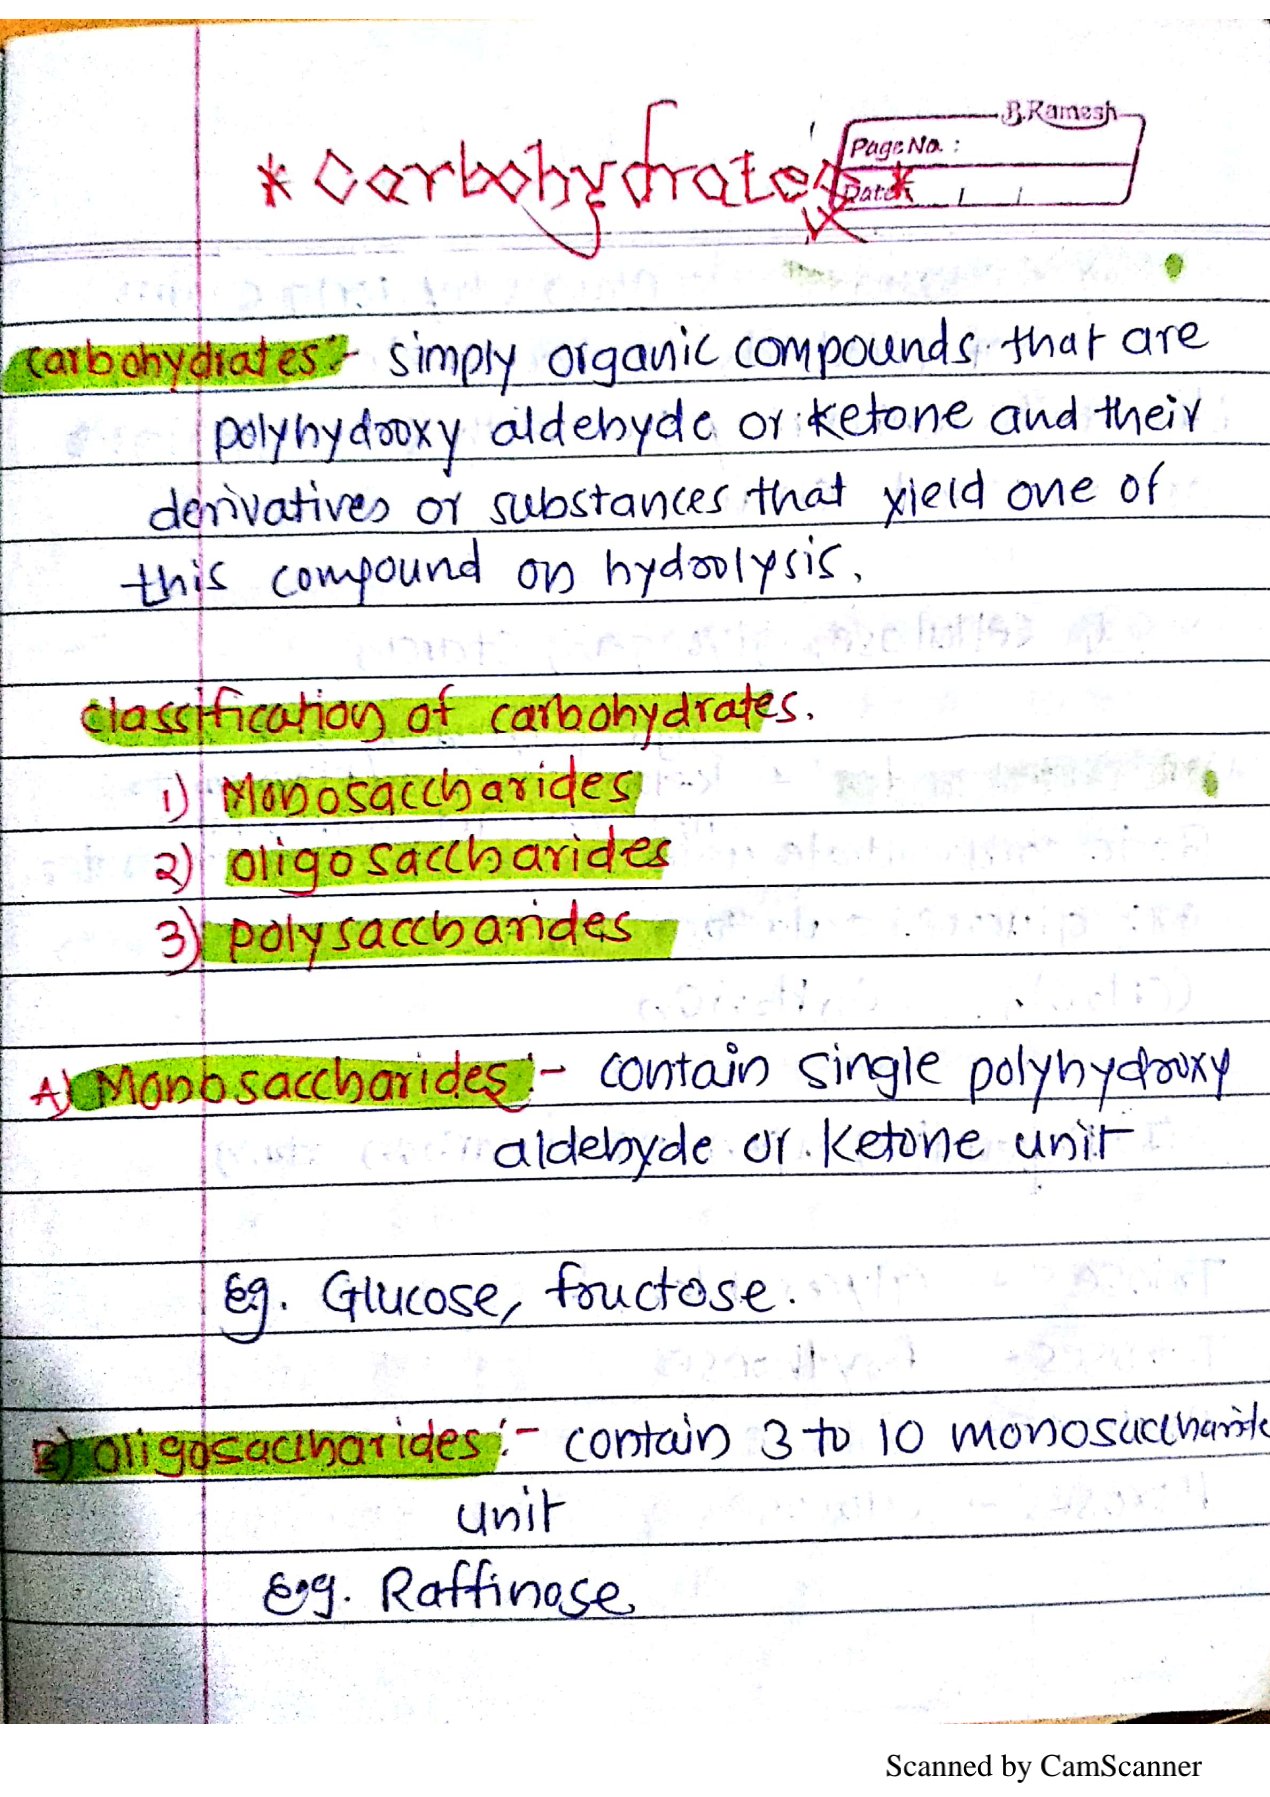 B.Ramesh
Page No. :
Date: / /
* Carbohydrates *
carbohydrates :- simply organic compounds that are
polyhydroxy aldehyde or ketone and their
derivatives or substances that yield one of
this compound on hydrolysis.
classification of carbohydrates.
1) Monosaccharides
2) oligosaccharides
3) polysaccharides
A) Monosaccharides :- contain single polyhydroxy
aldehyde or ketone unit
Eg. Glucose, fructose.
B) oligosaccharides :- contain 3 to 10 monosaccharide
unit
Eg. Raffinose
Scanned by CamScanner